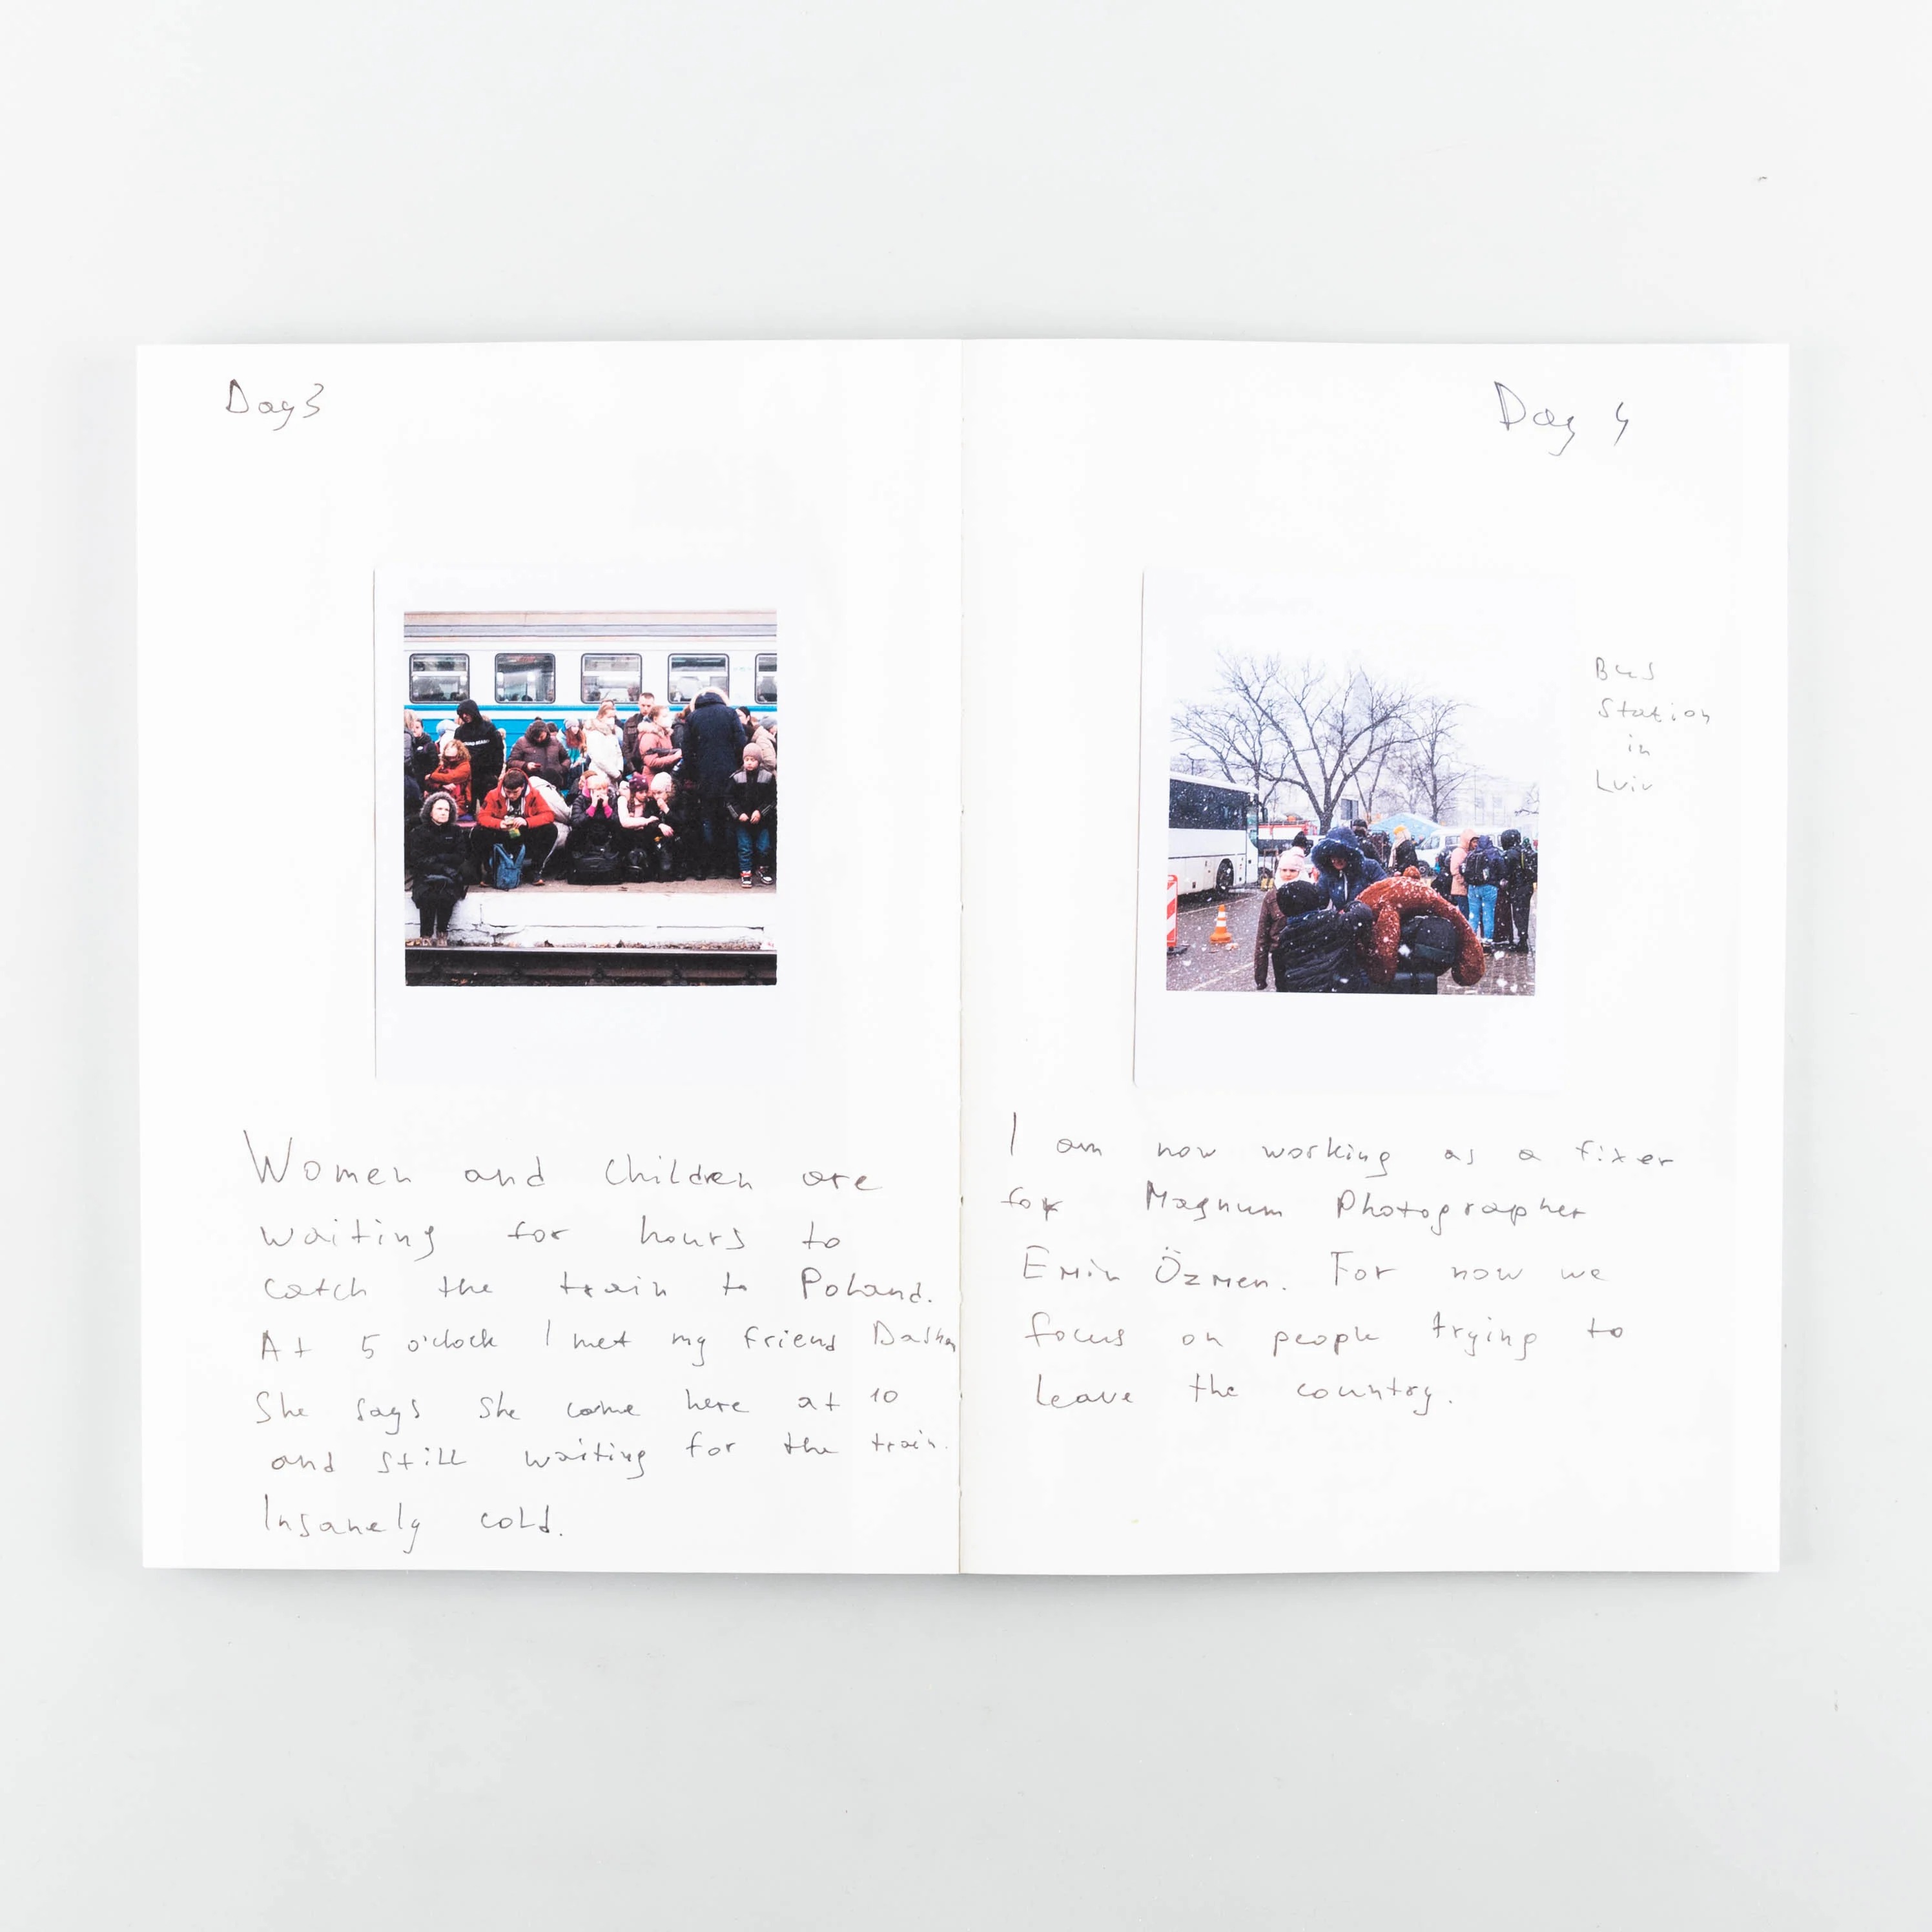 Day 3
Women and children are
waiting for hours to
catch the train to Poland.
At 5 o'clock I met my friend Dasha
She says she came here at 10
and still waiting for the train.
Insanely cold.
Day 4
Bus
Station
in
Lviv
I am now working as a fixer
for Magnum Photographer
Emin Özmen. For now we
focus on people trying to
leave the country.